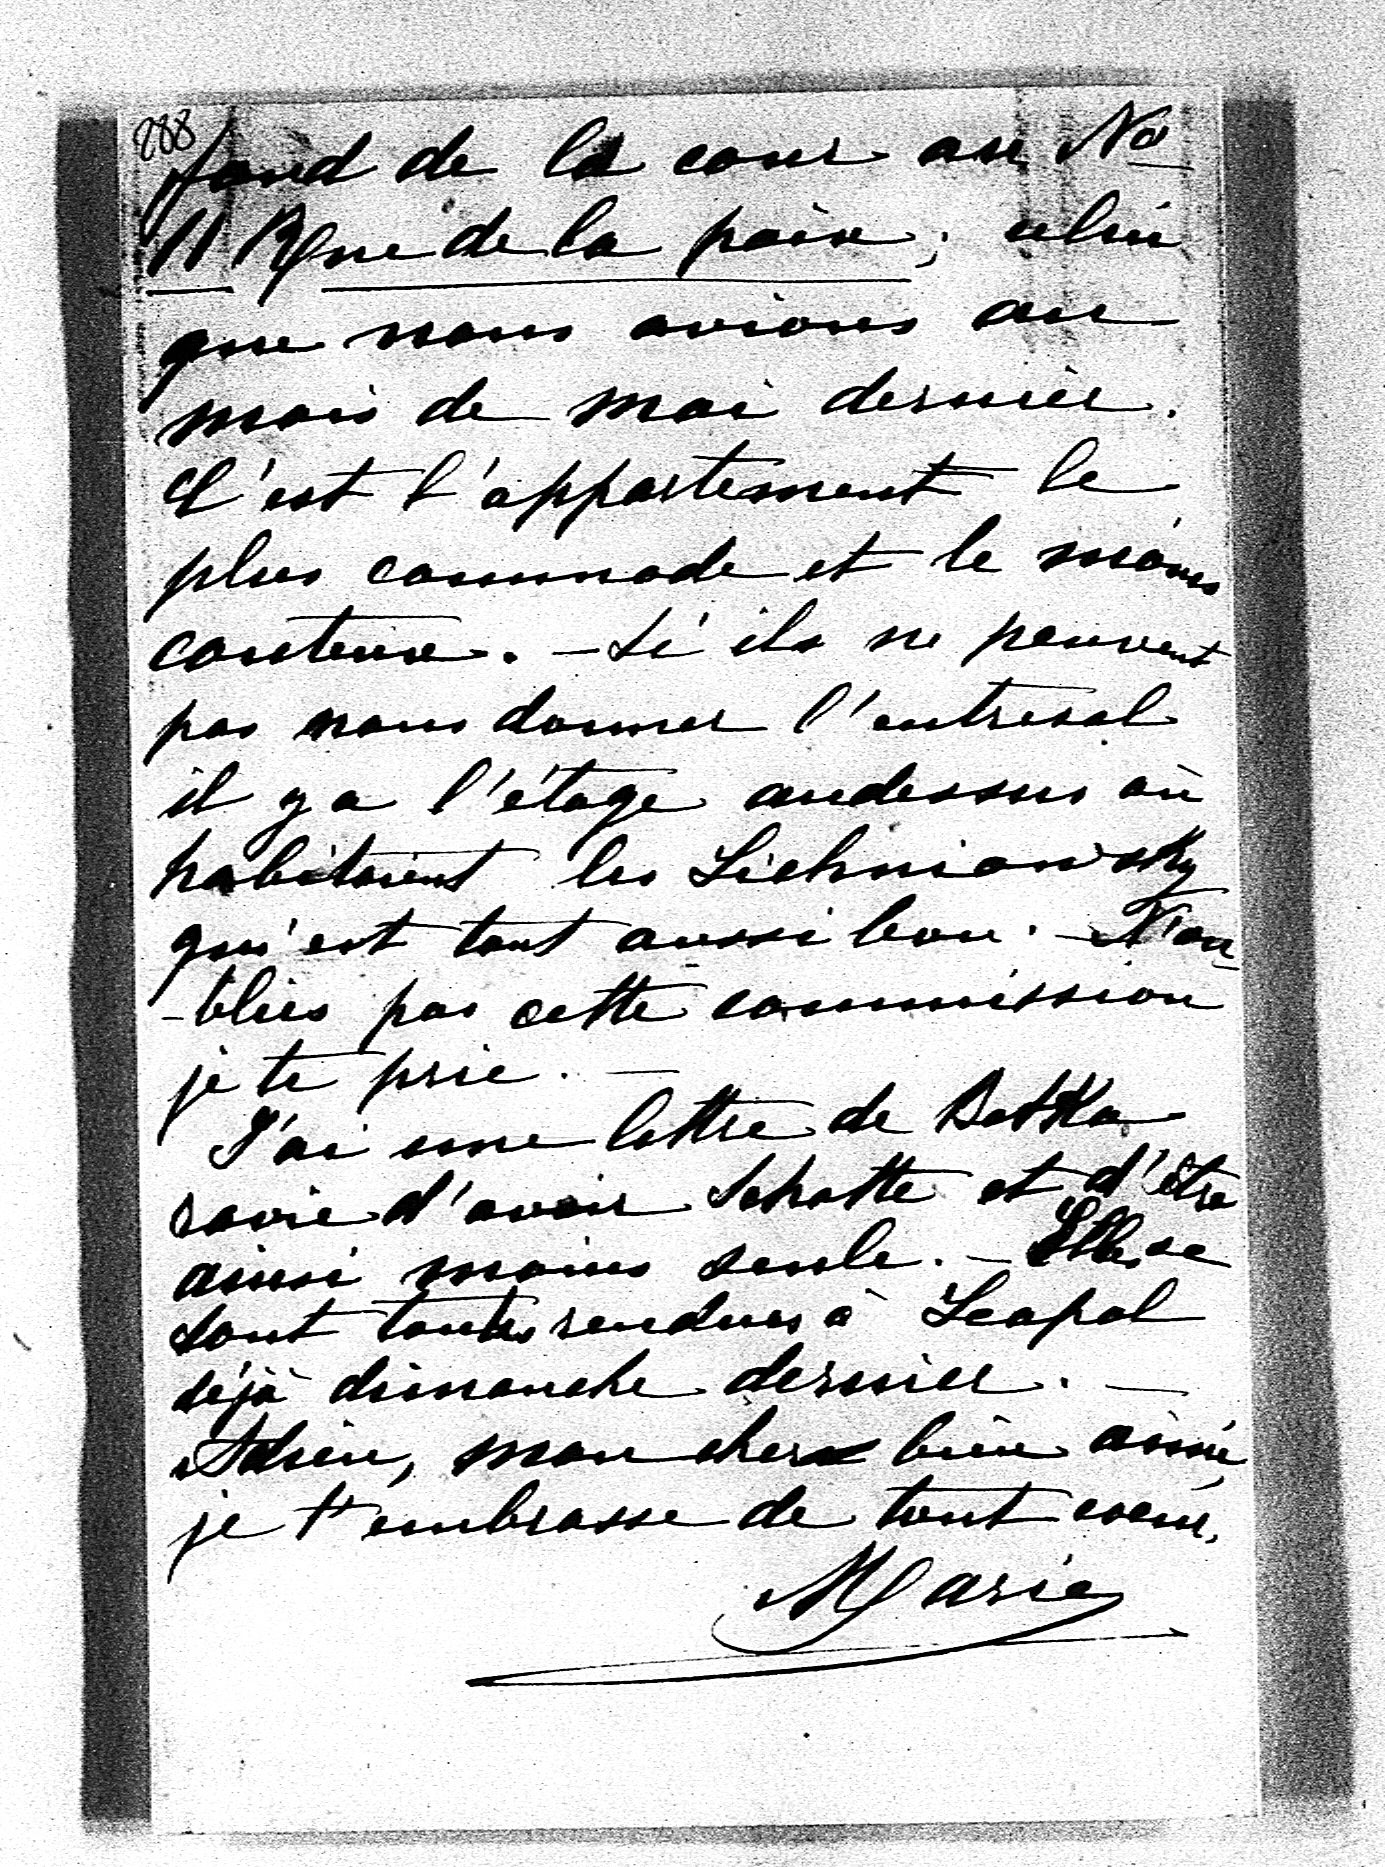 288
fond de la cour au No
11 Rue de la paix, celui
que nous avions au
mois de mai dernier.
C'est l'appartement le
plus commode et le moins
couteux. – Si ils ne peuvent
pas nous donner l'entresol
il y a l'étage audessus où
habitaient les Lichniowsky
qui est tout aussi bon. – N'ou
-blies pas cette commission
je te prie. –
J'ai une lettre de Betka
ravie d'avoir Schotte et d'être
ainsi moins seule. – Elles se
sont toutes rendues à Leopol
déjà dimanche dernier. –
Adieu, mon cher bien aimé,
je t'embrasse de tout coeur.
Marie